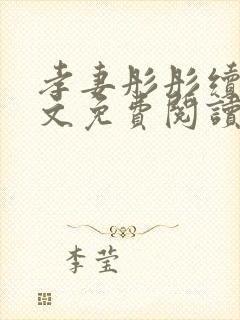 孝妻彤彤續
文免費閱讀
李莹